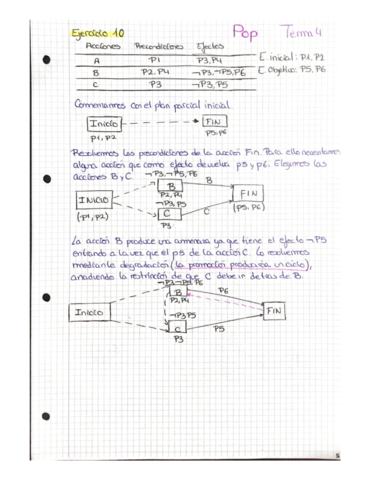 Ejercicio 10 Pop Tema 4
Acciones Precondiciones Efectos
A ¬P1 P3,P4 E. inicial: P1, P2
B P2,P4 ¬P3,¬P5,P6 E. Objetivo: P5, P6
C P3 ¬P3,P5
Comenzamos con el plan parcial inicial
Inicio FIN
P1, P2 P5,P6
Resolvemos las precondiciones de la acción Fin. Para ello necesitamos
alguna acción que como efecto devuelva p5 y p6. Elegimos las
acciones B y C.
¬P3,¬P5,P6
B B
P2,P4
INICIO FIN
¬P3,P5
(P1,P2) C C (P5,P6)
P3
La acción B produce una amenaza ya que tiene el efecto ¬P5
entrando a la vez que el p5 de la acción C. Lo resolvemos
mediante degradación (la promoción produciría un ciclo),
añadiendo la restricción de que C debe ir detrás de B.
¬P3 ¬P5 P6
B P6
P2,P4
Inicio FIN
¬P3 P5
C P5
P3
5